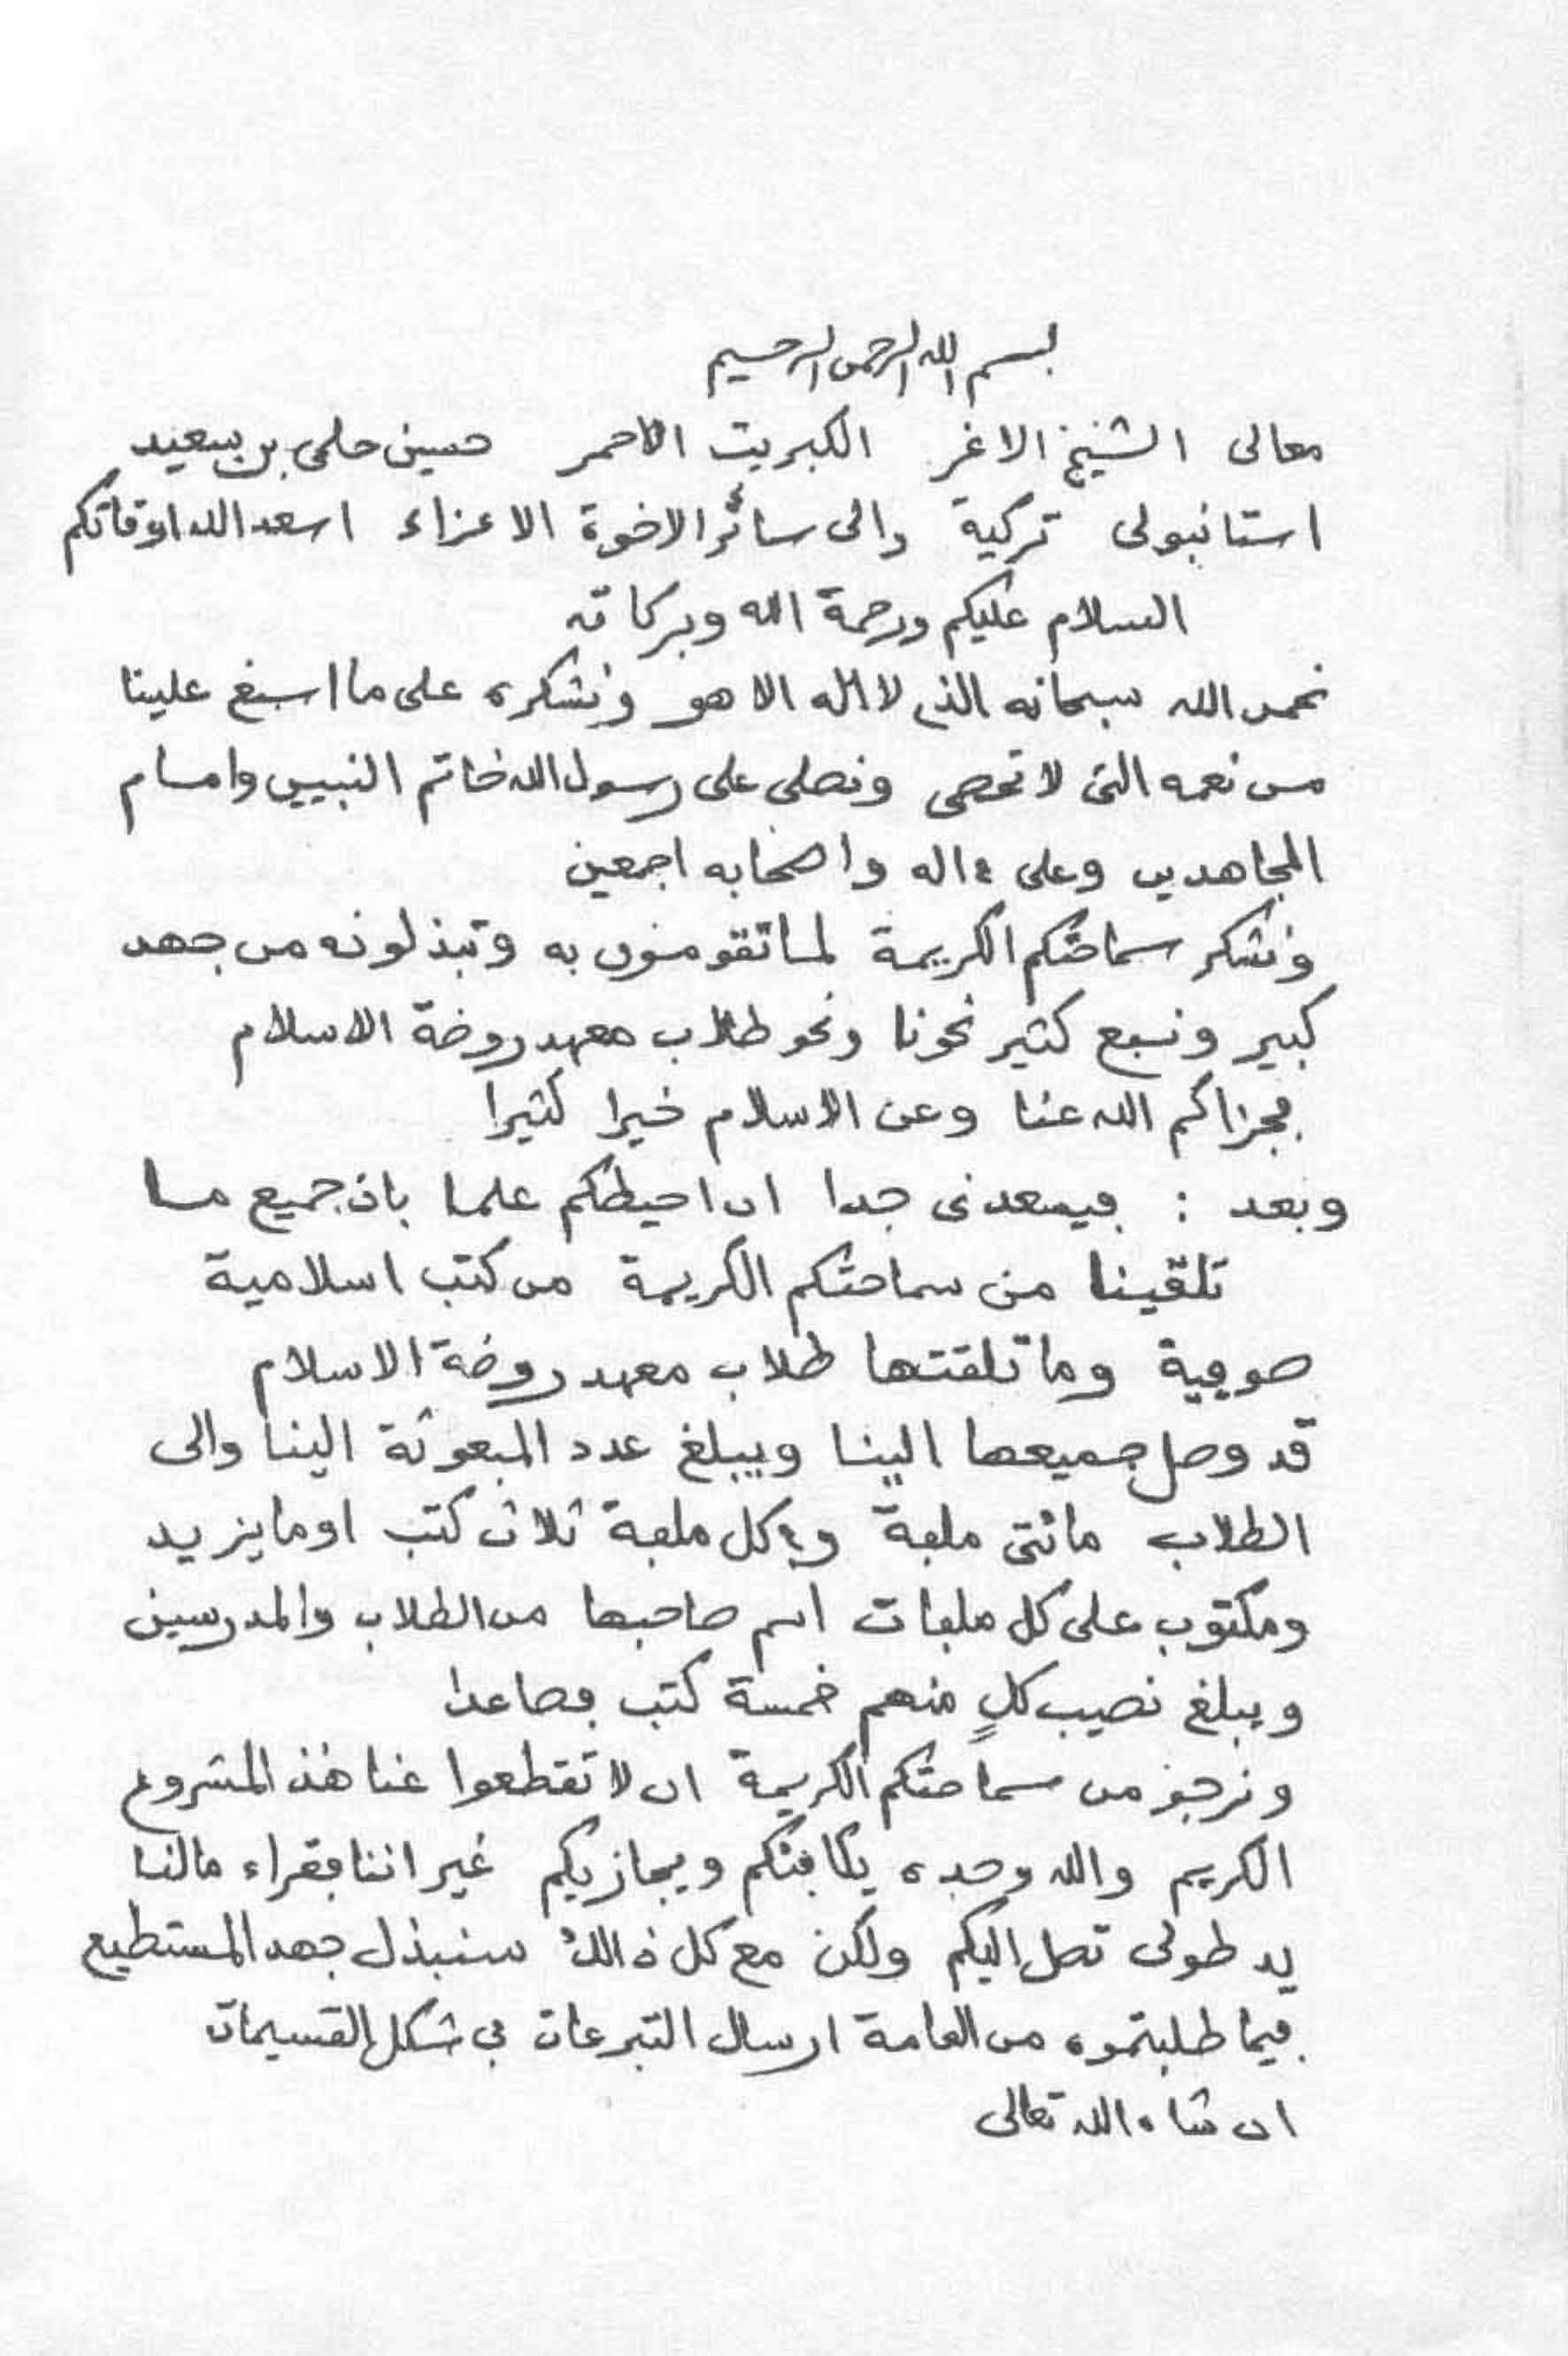 بسم الله الرحمن الرحيم
معالى الشيخ الاغر الكبريت الاحمر حسين حلمى بن سعيد
استانبولى تركية والى سائر الاخوة الاعزاء اسعد الله اوقاتكم
السلام عليكم ورحمة الله وبركاته
نحمد الله سبحانه الذى لا اله الا هو ونشكره على ما اسبغ علينا
من نعمه التى لا تحصى ونصلى على رسول الله خاتم النبيين وامام
المجاهدين وعلى ءاله واصحابه اجمعين
ونشكر سماحتكم الكريمة لما تقومون به وتبذلونه من جهد
كبير ونبع كثير نحونا ونحو طلاب معهد روضة الاسلام
فجزاكم الله عنا وعن الاسلام خيرا كثيرا
وبعد : فيسعدنى جدا ان احيطكم علما بان جميع ما
تلقينا من سماحتكم الكريمة من كتب اسلامية
صوفية وما تلقتها طلاب معهد روضة الاسلام
قد وصل جميعها الينا ويبلغ عدد المبعوثة الينا والى
الطلاب مائتى ملفة وفى كل ملفة ثلاث كتب او ما يزيد
ومكتوب على كل ملفات اسم صاحبها من الطلاب والمدرسين
ويبلغ نصيب كلٍ منهم خمسة كتب فصاعدا
ونرجو من سماحتكم الكريمة ان لا تقطعوا عنا هذا المشروع
الكريم والله وحده يكافئكم ويجازيكم غير اننا فقراء مالنا
يد طولى تصل اليكم ولكن مع كل ذالك سنبذل جهد المستطيع
فيما طلبتموه من العامة ارسال التبرعات فى شكل القسيمات
ان شاء الله تعالى